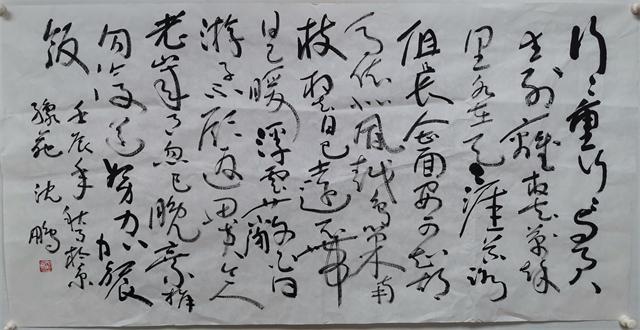 行行重行行与君
生别離相去萬餘
里各在天一涯道路
阻且長会面安可知胡
馬依北風越鸟巢南
枝相去日已遠衣带
日已暖浮雲蔽白日
游子不顾返思君令人
老岁月忽已晚棄捐
勿復道努力加餐
飯
壬辰年秋写於京
沈鹏